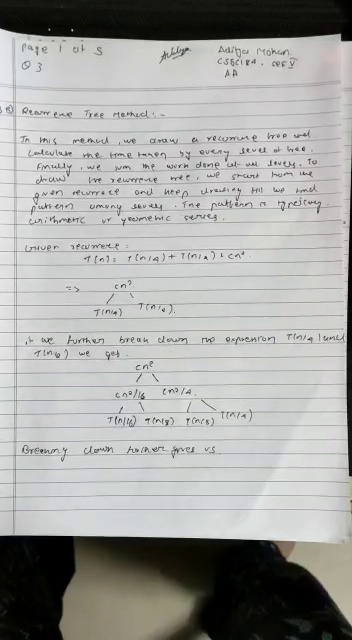 Page 1 of 5
Aditya Mohan
Q3
CSE V
AA
Recurrence Tree Method:-
In this method, we draw a recurrence tree and
calculate the time taken by every level of tree.
Finally, we sum the work done at all levels. To
draw the recurrence tree, we start from the
given recurrence and keep drawing till we find
pattern among levels. The pattern is typically
arithmetic or geometric series.
Given recurrence:
T(n) = T(n/4) + T(n/2) + cn²
=> cn²
T(n/4) T(n/2).
if we further break down the expression T(n/4) and
T(n/2) we get.
cn²
cn²/16 cn²/4.
T(n/16) T(n/8) T(n/8) T(n/4)
Breaking down further gives us